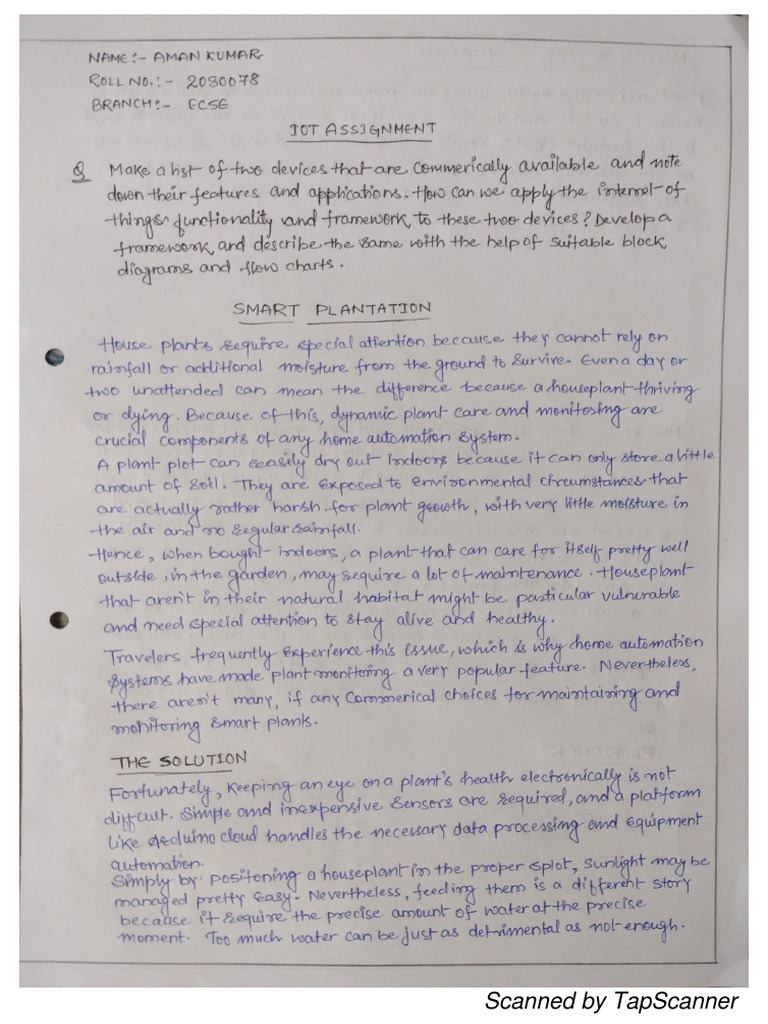 NAME:- AMAN KUMAR
ROLL NO.:- 2030078
BRANCH:- ECSE
IOT ASSIGNMENT
Q Make a list of two devices that are commerically available and note
down their features and applications. How can we apply the internet of
things functionality and framework to these two devices? Develop a
framework and describe the same with the help of suitable block
diagrams and flow charts.
SMART PLANTATION
House plants require special attention because they cannot rely on
rainfall or additional moisture from the ground to survive. Even a day or
two unattended can mean the difference because a houseplant thriving
or dying. Because of this, dynamic plant care and monitoring are
crucial components of any home automation system.
A plant plot can easily dry out indoors because it can only store a little
amount of soil. They are exposed to environmental circumstances that
are actually rather harsh for plant growth, with very little moisture in
the air and no regular rainfall.
Hence, when bought indoors, a plant that can care for itself pretty well
outside, in the garden, may require a lot of maintenance. Houseplant
that aren't in their natural habitat might be particular vulnerable
and need special attention to stay alive and healthy.
Travelers frequently experience this issue, which is why home automation
systems have made plant monitoring a very popular feature. Nevertheless,
there aren't many, if any commerical choices for maintairing and
monitoring smart plants.
THE SOLUTION
Fortunately, keeping an eye on a plant's health electronically is not
difficult. Simple and inexpensive sensors are required, and a platform
like Arduino cloud handles the necessary data processing and equipment
automation.
Simply by positoning a houseplant in the proper splot, sunlight may be
managed pretty easy. Nevertheless, feeding them is a different story
because it require the precise amount of water at the precise
moment. Too much water can be just as detrimental as not enough.
Scanned by TapScanner